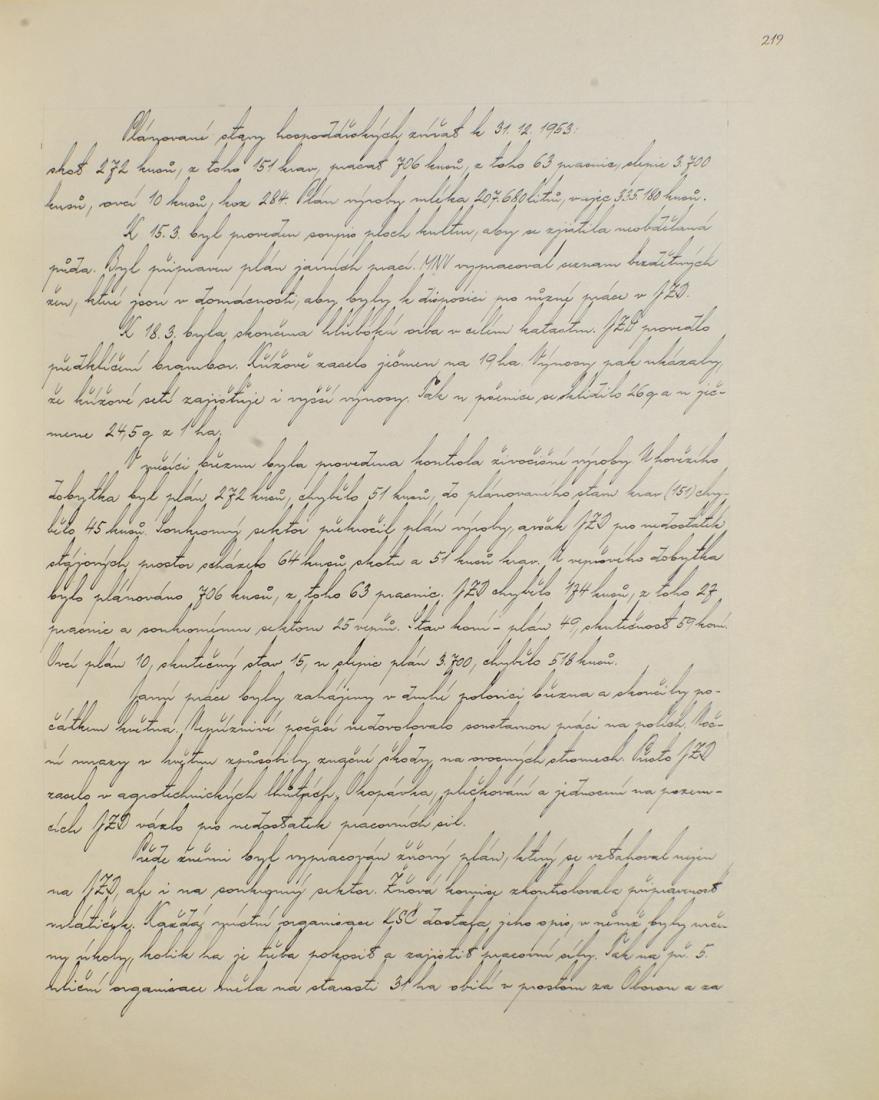 219
Plánované stavy hospodářských zvířat k 31. 12. 1953:
skot 272 kusů, z toho 151 krav, prasat 706 kusů, z toho 63 prasnic, slepic 3.700
kusů, ovcí 10 kusů, koz 284. Plán výroby mléka 207.680 litrů, vajec 335.180 kusů.
K 15. 3. byl proveden soupis ploch kultur, aby se zjistila neobdělaná
půda. Byl připraven plán jarních prací. MNV vypracoval seznam bezdětných
žen, které jsou v domácnosti, aby byly k disposici pro různé práce v JZD.
K 18. 3. byla skončena hluboká orba v celém katastru. JZD provedlo
předklíčení brambor. Křížově zaselo ječmen na 19 ha. Výnosy pak ukázaly,
že křížové setí zajišťuje i vyšší výnosy. Tak u pšenice se sklidilo 26 q a u ječ-
mene 24,5 q z 1 ha.
V měsíci březnu byla provedena kontrola živočišné výroby. U hovězího
dobytka byl plán 272 kusů, chybělo 51 kusů, do plánovaného stavu krav (151) chy-
bělo 45 kusů. Soukromý sektor překročil plán výroby, avšak JZD pro nedostatek
stájových prostor scházelo 64 kusů skotu a 51 kusů krav. U vepřového dobytka
bylo plánováno 706 kusů, z toho 63 prasnic. JZD chybělo 174 kusů, z toho 27
prasnic a soukromému sektoru 25 vepřů. Stav koní - plán 49, skutečnost 59 koní.
Ovcí plán 10, skutečný stav 15, u slepic plán 3.700, chybělo 518 kusů.
Jarní práce byly zahájeny v druhé polovici března a skončily po-
čátkem května. Nepříznivé počasí nedovolovalo soustavnou práci na polích. Noč-
ní mrazy v květnu způsobily značné škody na ovocných stromech. Přesto JZD
zaselo v agrotechnických lhůtách. Okopávka, plečkování a jednocení na pozem-
cích JZD vázlo pro nedostatek pracovních sil.
Přede žněmi byl vypracován žňový plán, který se vztahoval nejen
na JZD, ale i na soukromý sektor. Žňová komise zkontrolovala připravenost
mlátiček. Každá místní organisace KSČ dostala jeho opis, v němž byly urče-
ny úkoly, kolik ha je třeba pokosit a zajistit pracovní síly. Tak na př. 5.
uliční organisace měla na starosti 31 ha obilí v prostoru za Oborou a za